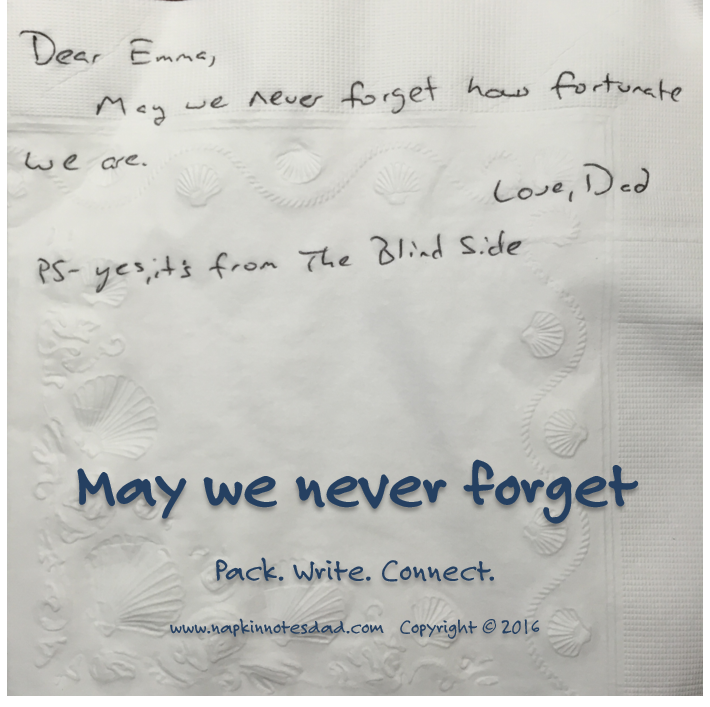 Dear Emma,
May we never forget how fortunate
we are.
Love, Dad
PS- yes, it's from The Blind Side
May we never forget
Pack. Write. Connect.
www.napkinnotesdad.com Copyright © 2016